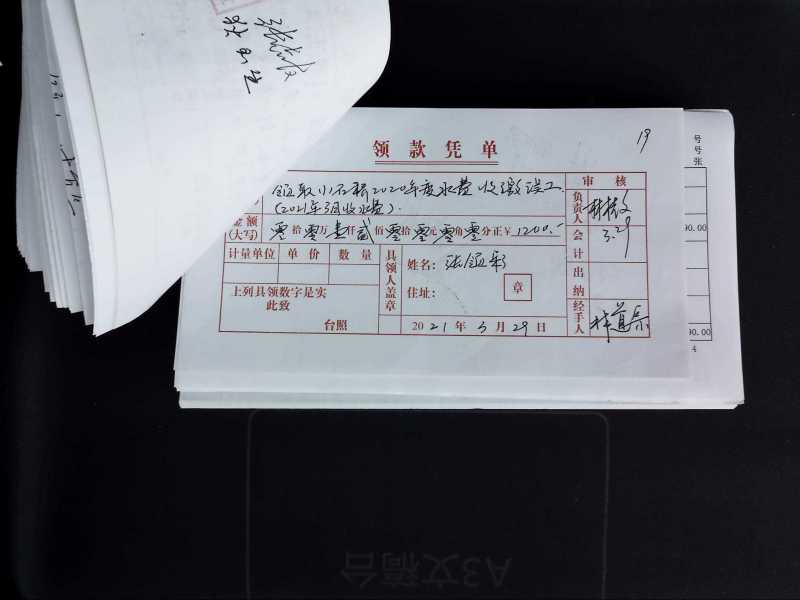 领款凭单
19
领取小石桥2020年度水费收缴误工
(2021年3月收水费).
金额
(大写)
零拾零万壹仟贰佰零拾零元零角零分正¥1200.-
计量单位 单价 数量
上列具领数字是实
此致
台照
具领人盖章
姓名:
住址:
章
2021年3月29日
审核
负责人
3.29
会计
出纳
经手人
号
号
张
90.00
90.00
4
A3文稿台